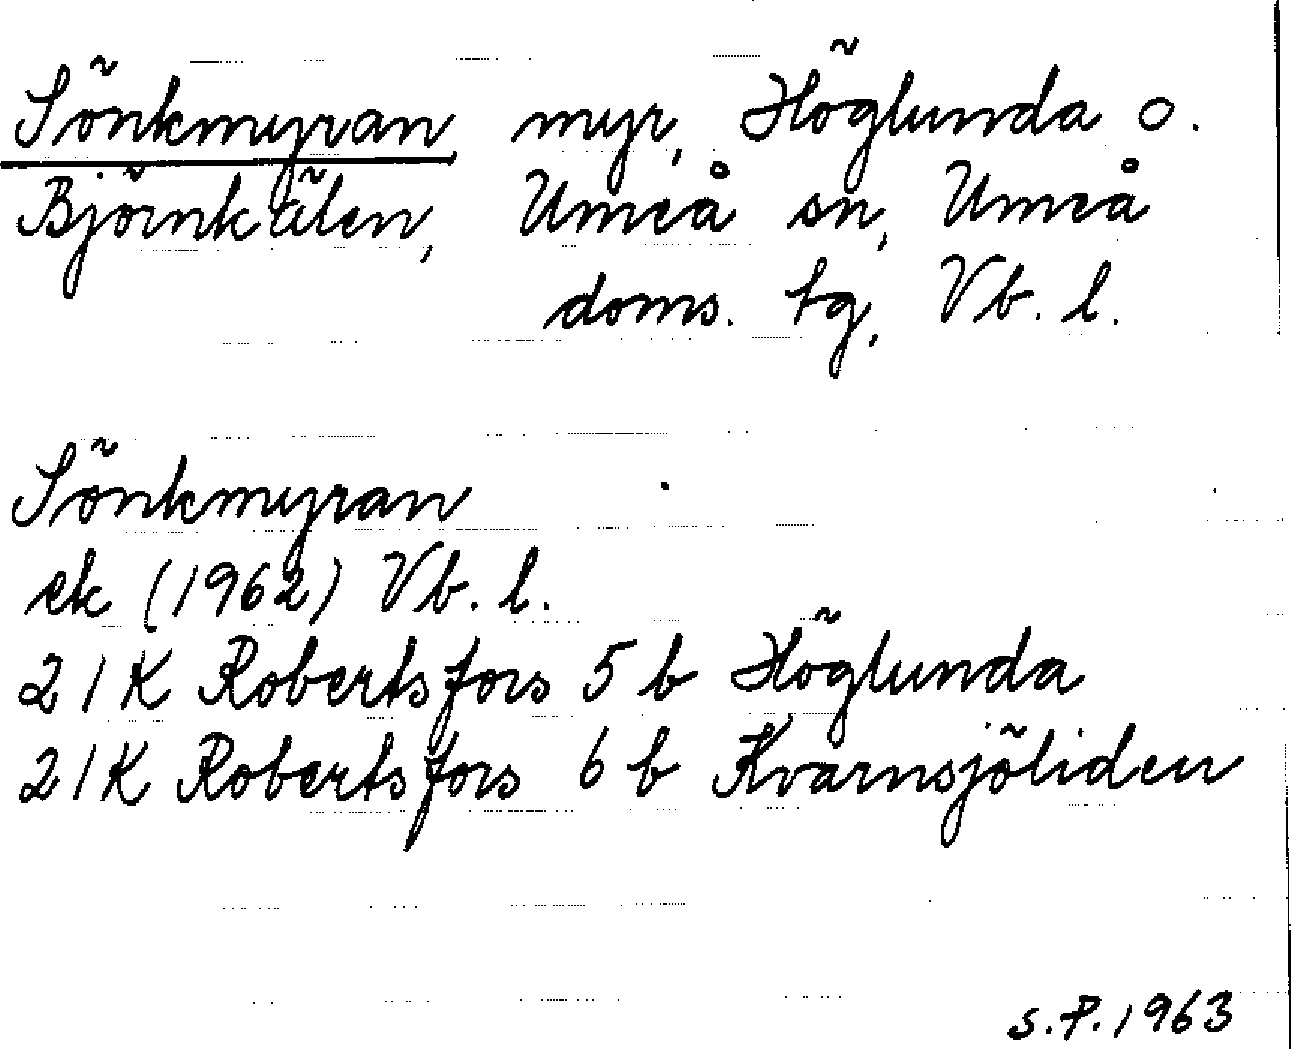 Sönkmyran, myr, Höglunda o.
Björnkälen, Umeå sn, Umeå
doms. tg, Vb. l.
Sönkmyran
ek (1962) Vb. l.
21K Robertsfors 5 b Höglunda
21K Robertsfors 6 b Kvarnsjöliden
S.P. 1963